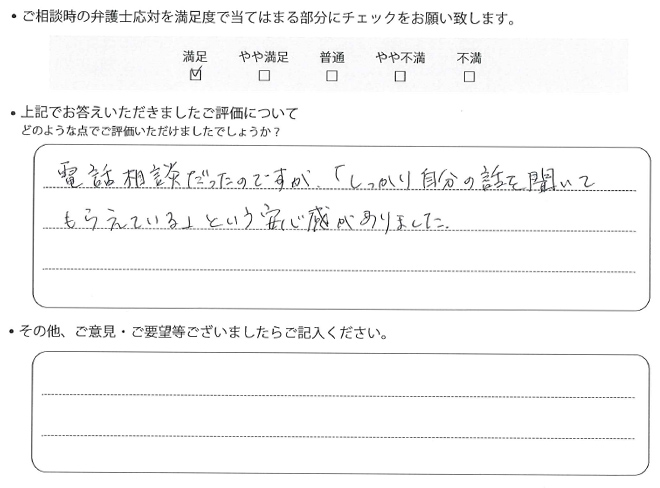 • ご相談時の弁護士応対を満足度で当てはまる部分にチェックをお願い致します。
満足 やや満足 普通 やや不満 不満
☑ ☐ ☐ ☐ ☐
• 上記でお答えいただきましたご評価について
どのような点でご評価いただけましたでしょうか？
電話相談だったのですが、「しっかり自分の話を聞いて
もらえている」という安心感がありました。
• その他、ご意見・ご要望等ございましたらご記入ください。